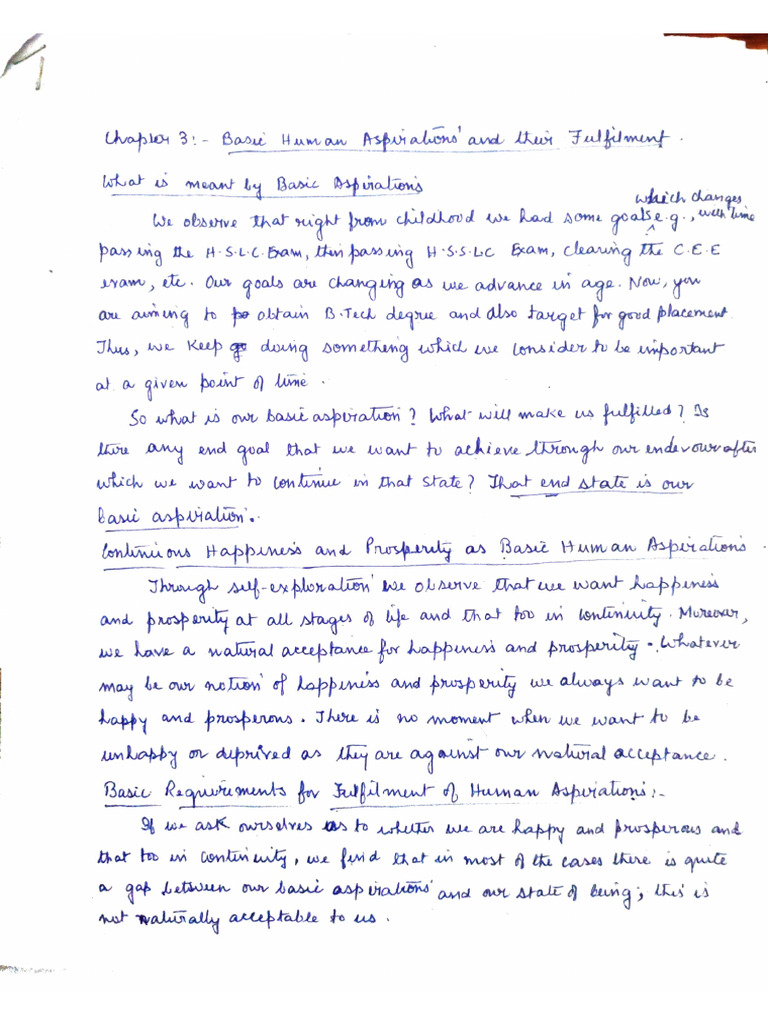 Chapter 3:- Basic Human Aspirations and their Fulfilment.
What is meant by Basic Aspirations
We observe that right from childhood we had some goals which changes with time e.g.,
passing the H.S.L.C. Exam, then passing H.S.S.LC Exam, clearing the C.E.E
exam, etc. Our goals are changing as we advance in age. Now, you
are aiming to obtain B.Tech degree and also target for good placement.
Thus, we keep doing something which we consider to be important
at a given point of time.
So what is our basic aspiration? What will make us fulfilled? Is
there any end goal that we want to achieve through our endevour after
which we want to continue in that state? That end state is our
basic aspiration.
Continuous Happiness and Prosperity as Basic Human Aspirations.
Through self-exploration we observe that we want happiness
and prosperity at all stages of life and that too in continuity. Moreover,
we have a natural acceptance for happiness and prosperity. Whatever
may be our notion of happiness and prosperity we always want to be
happy and prosperous. There is no moment when we want to be
unhappy or deprived as they are against our natural acceptance.
Basic Requirements for Fulfilment of Human Aspirations:-
If we ask ourselves as to whether we are happy and prosperous and
that too in continuity, we find that in most of the cases there is quite
a gap between our basic aspirations and our state of being; this is
not naturally acceptable to us.